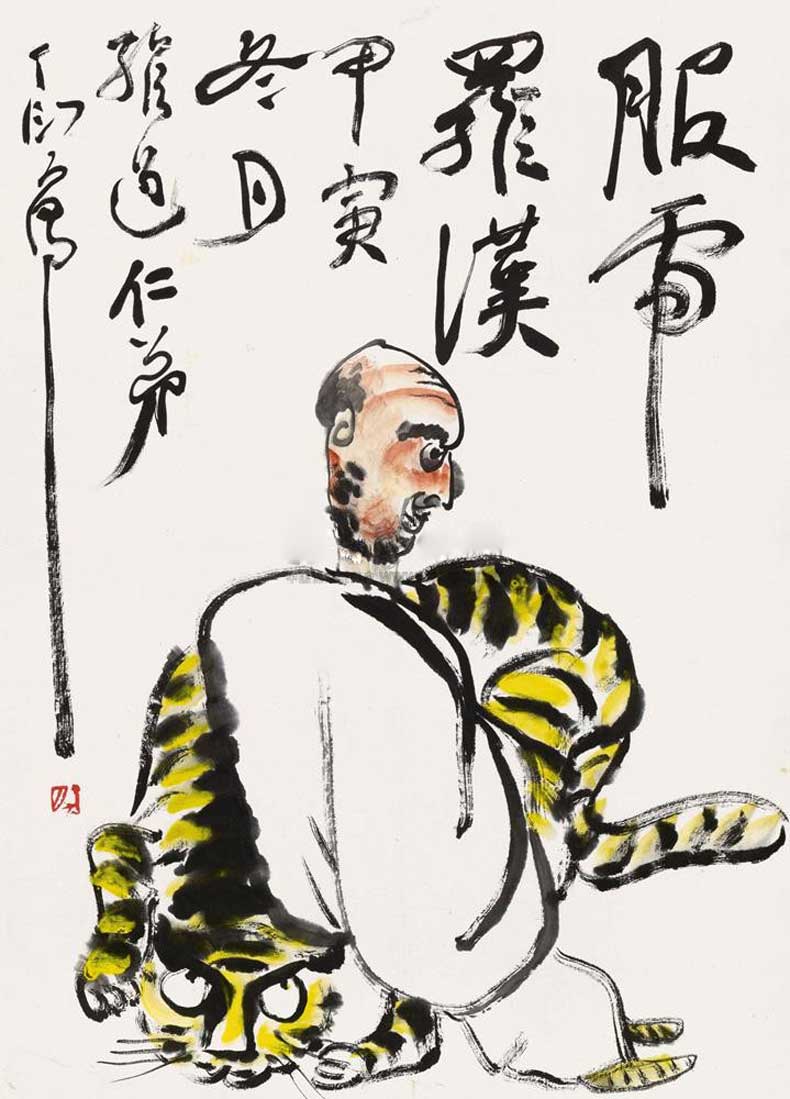 服虎
羅漢
甲寅
冬月
道仁弟
丁衍庸